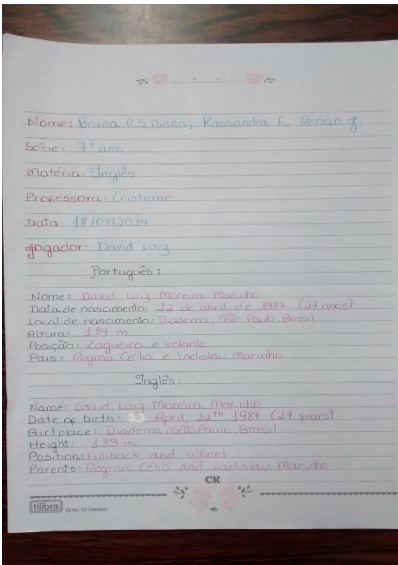 Nome: Bruna R.S Diana, Kassandra F, Renan J.
Série: 7º ano
Matéria: Inglês
Professora: Cristiane
Data: 18/07/2014
Jogador: David Luiz
Português:
Nome: David Luiz Moreira Marinho
Data de nascimento: 22 de abril de 1987 (27 anos)
Local de nascimento: Diadema, São Paulo, Brasil
Altura: 1.89 m
Posição: Zagueiro e volante
Pais: Regina Célia e Ladislau Marinho
Inglês:
Name: David Luiz Moreira Marinho
Date of birth: April, 22th 1987 (27 years)
Birtplace: Diadema, São Paulo, Brasil
Height: 1.89 m
Position: Fullback and wheel
Parents: Regina Célia and Ladislau Marinho
CR
tilibra